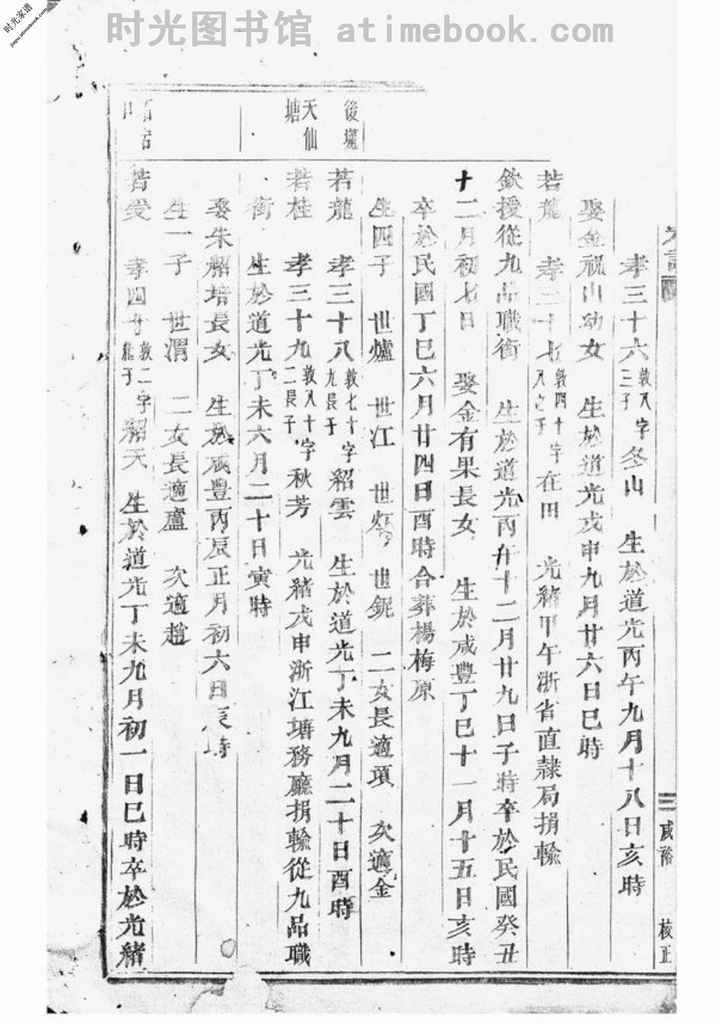 时光图书馆 atimebook.com
时光家谱
咸裕 校正
孝三十六敦八字三子冬山 生於道光丙午九月十八日亥時
娶金視山幼女 生於道光戊申九月廿六日巳時
若龍 孝三十七敦四十字在田 光緒甲午浙省直隸局捐輸
欽授從九品職銜 生於道光丙午十二月廿九日子時卒於民國癸丑
十二月初七日 娶金有果長女 生於咸豐丁巳十一月十五日亥時
卒於民國丁巳六月廿四日酉時合葬楊梅原
生四子 世爐 世江 世 世鈮 二女長適項 次適金
後壠
若龍 孝三十八敦七十字九長子紹雲 生於道光丁未九月二十日酉時
天仙塘
若桂 孝三十九敦八十字二長子秋芳 光緒戊申浙江塘務廳捐輸從九品職
銜 生於道光丁未六月二十日寅時
娶朱紹培長女 生於咸豐丙辰正月初六日辰時
生一子 世渭 二女長適盧 次適趙
若受 孝四十敦二字子紹天 生於道光丁未九月初一日巳時卒於光緒